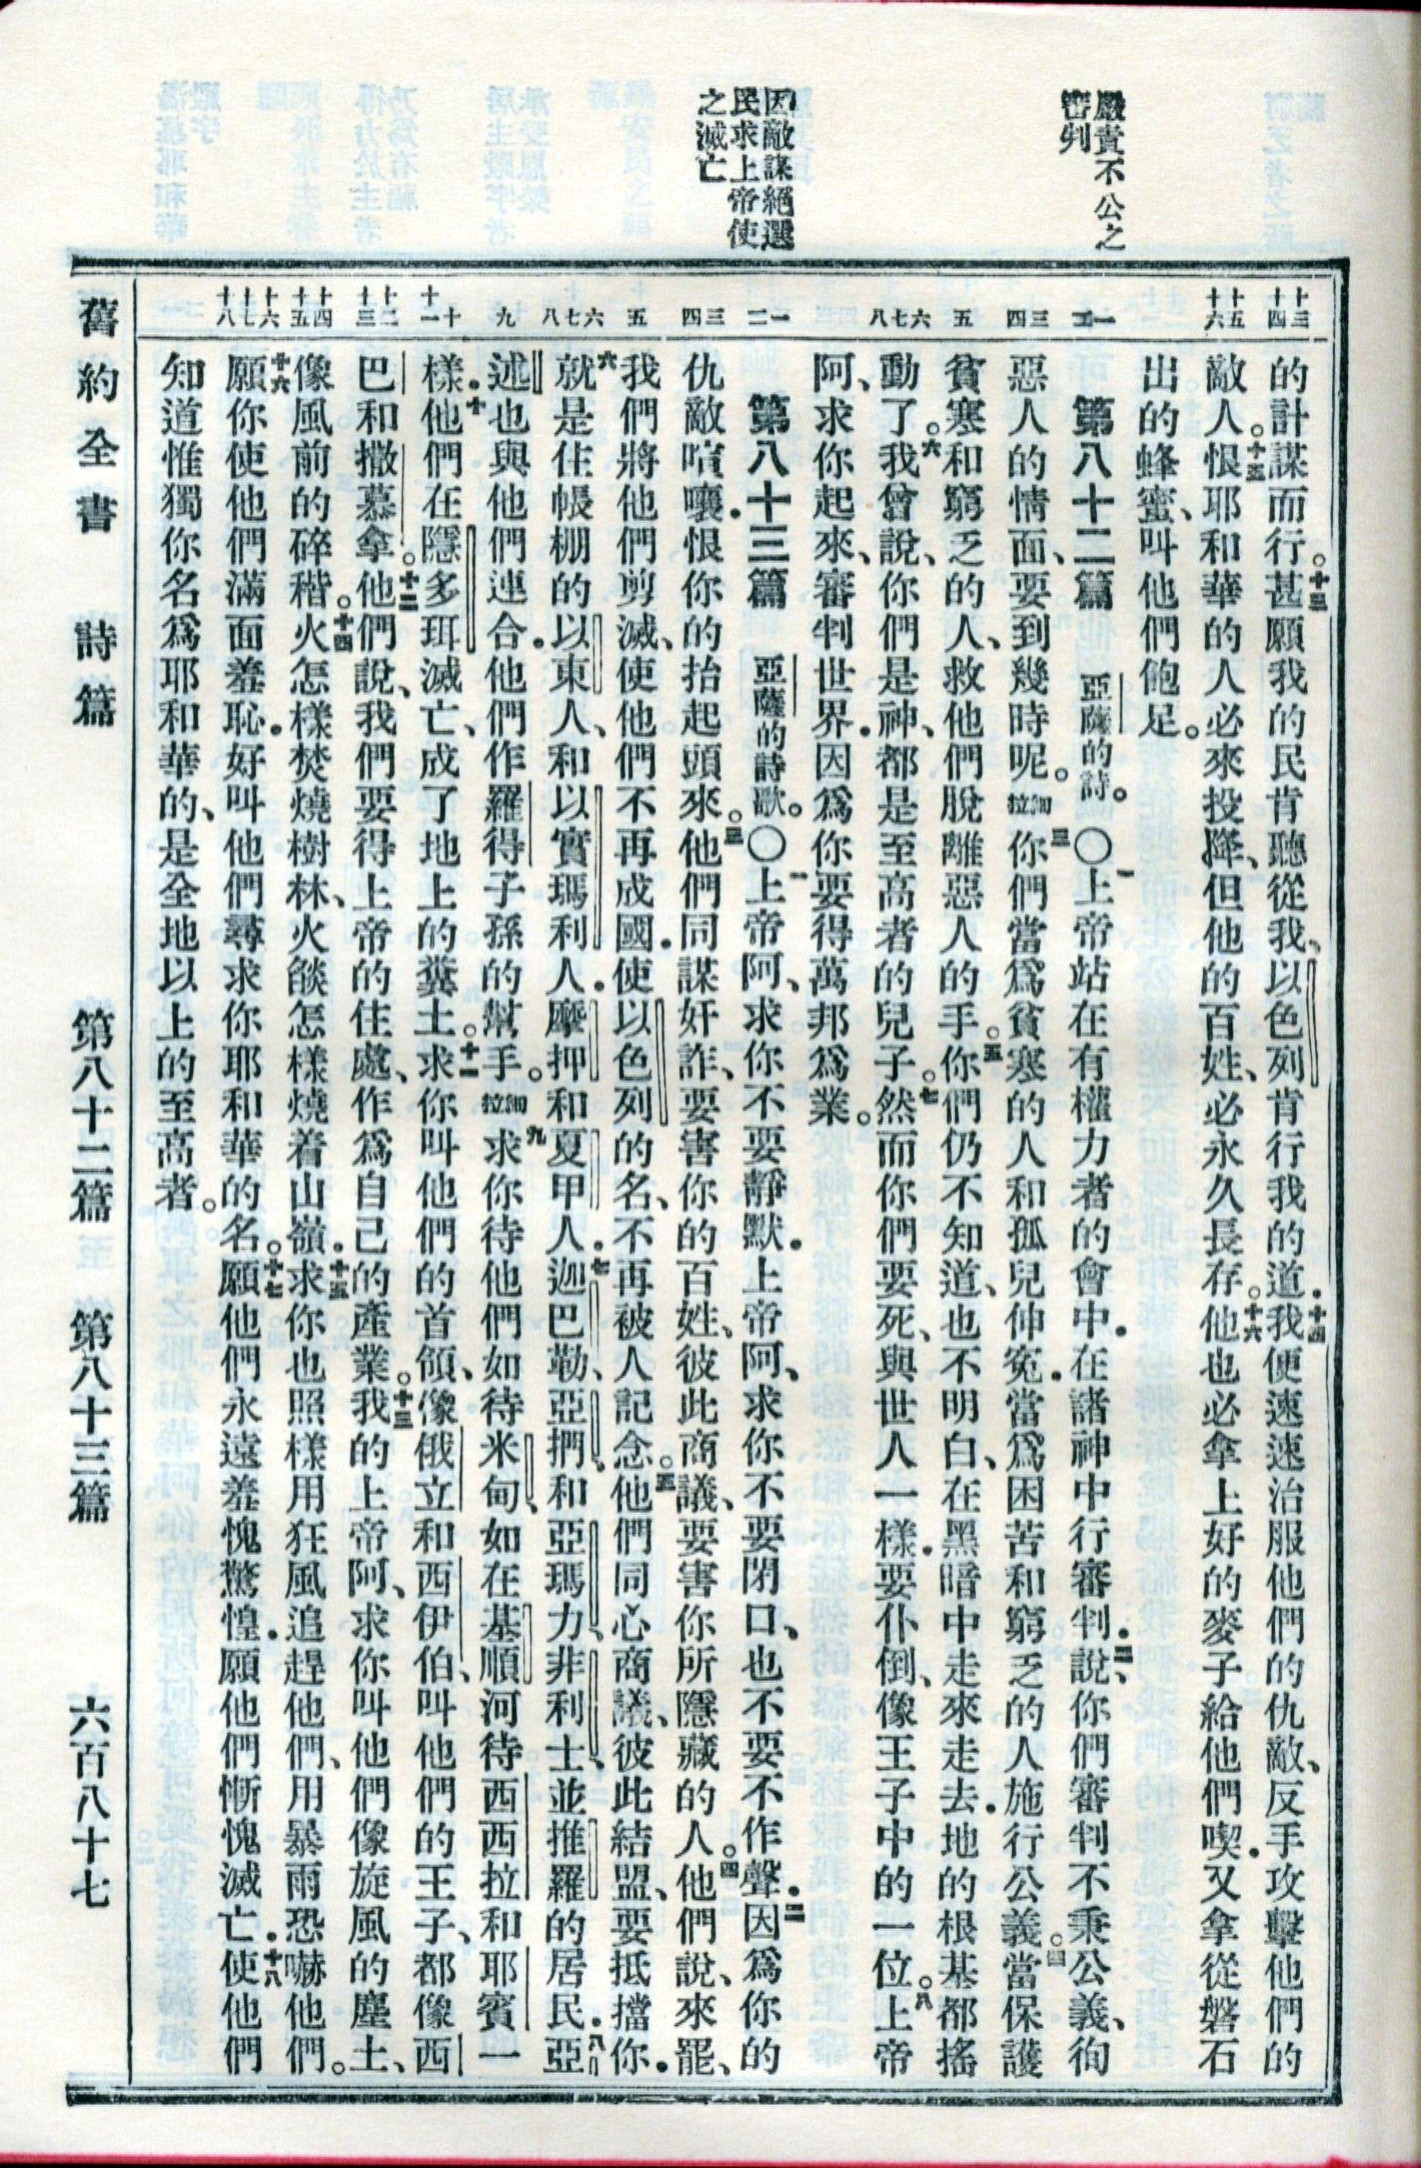 嚴責不公之
審判
因敵謀絕選
民求上帝使
之滅亡
十三 十四
十五 十六
一 二
三 四
五
六 七 八
一 二
三 四
五
六 七 八
九
十 十一
十二 十三
十四 十五
十六 十七 十八
的計謀而行。十三甚願我的民肯聽從我、以色列肯行我的道．十四我便速速治服他們的仇敵、反手攻擊他們的
敵人。十五恨耶和華的人必來投降、但他的百姓、必永久長存。十六他也必拿上好的麥子給他們喫．又拿從磐石
出的蜂蜜、叫他們飽足。
第八十二篇 亞薩的詩。〇一上帝站在有權力者的會中．在諸神中行審判．二說、你們審判不秉公義、徇
惡人的情面、要到幾時呢。細拉三你們當爲貧寒的人和孤兒伸冤．當爲困苦和窮乏的人施行公義。四當保護
貧寒和窮乏的人、救他們脫離惡人的手。五你們仍不知道、也不明白、在黑暗中走來走去．地的根基都搖
動了。六我曾說、你們是神、都是至高者的兒子。七然而你們要死、與世人一樣．要仆倒、像王子中的一位。八上帝
阿、求你起來、審判世界．因爲你要得萬邦爲業。
第八十三篇 亞薩的詩歌。〇一上帝阿、求你不要靜默．上帝阿、求你不要閉口、也不要不作聲．二因爲你的
仇敵喧嚷．恨你的抬起頭來。三他們同謀奸詐、要害你的百姓、彼此商議、要害你所隱藏的人。四他們說、來罷、
我們將他們剪滅、使他們不再成國．使以色列的名、不再被人記念。五他們同心商議、彼此結盟、要抵擋你．
六就是住帳棚的以東人、和以實瑪利人．摩押和夏甲人．七迦巴勒、亞捫、和亞瑪力、非利士、並推羅的居民．八亞
述也與他們連合．他們作羅得子孫的幫手。細拉九求你待他們如待米甸、如在基順河待西西拉和耶賓一
樣．十他們在隱多珥滅亡、成了地上的糞土。十一求你叫他們的首領、像俄立和西伊伯、叫他們的王子、都像西
巴和撒慕拿。十二他們說、我們要得上帝的住處、作爲自己的產業。十三我的上帝阿、求你叫他們像旋風的塵土、
像風前的碎稭。十四火怎樣焚燒樹林、火燄怎樣燒着山嶺．十五求你也照樣用狂風追趕他們、用暴雨恐嚇他們。
十六願你使他們滿面羞恥．好叫他們尋求你耶和華的名。十七願他們永遠羞愧驚惶．願他們慚愧滅亡．十八使他們
知道惟獨你名爲耶和華的、是全地以上的至高者。
舊約全書 詩篇 第八十二篇 至 第八十三篇 六百八十七